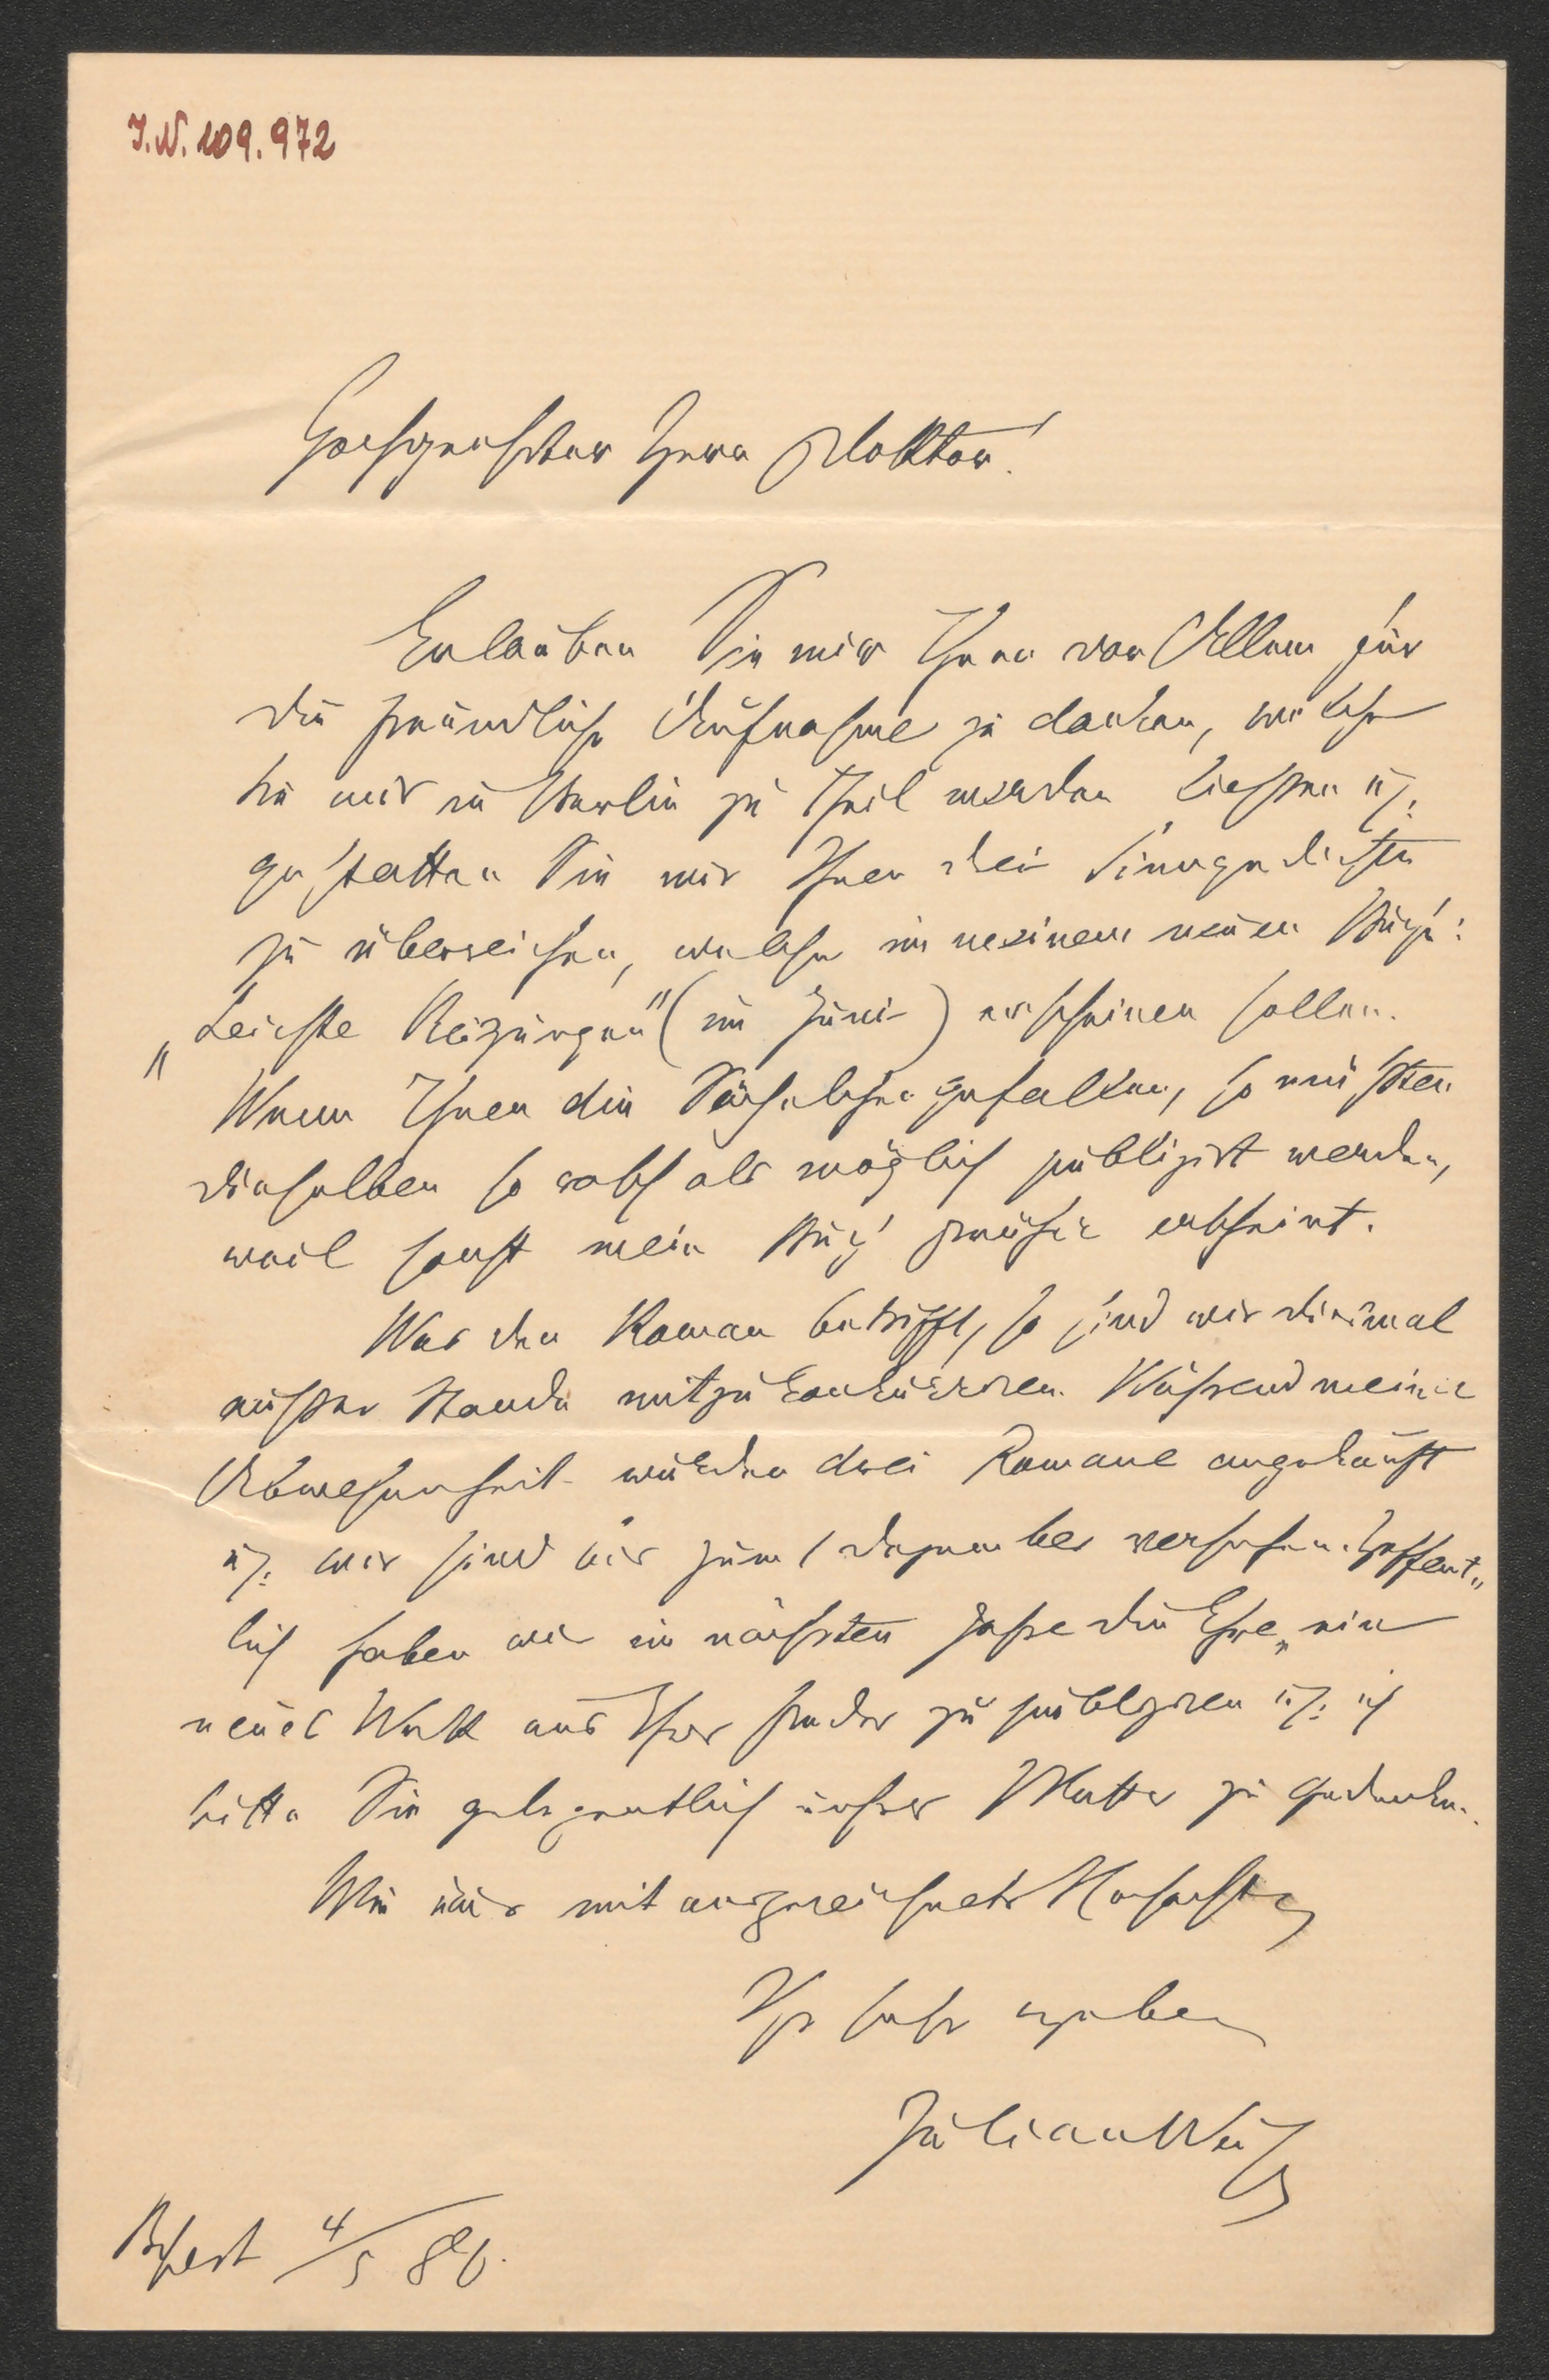 I.N. 109.972
Hochgeehrter Herr Doktor!
Erlauben Sie mir Ihnen vor Allem für
die freundliche Aufnahme zu danken, welche
Sie mir in Berlin zu Theil werden liessen u.
gestatten Sie mir Ihnen drei Sinngedichte
zu überreichen, welche in meinem neuen Buche:
„Leichte Reizungen" (im Juni) erscheinen sollen.
Wenn Ihnen die Sächelchen gefallen, so müssten
dieselben so rasch als möglich publizirt werden,
weil sonst mein Buch früher erscheint.
Was den Roman betrifft, so sind wir diesmal
ausser Stande mitzukonkurriren. Während meiner
Abwesenheit wurden drei Romane angekauft
u. wir sind bis zum Dezember versehen. Hoffent„
lich haben wir im nächsten Jahre die Ehre, ein
neues Werk aus Ihrer Feder zu publiziren u. ich
bitte Sie gelegentlich unser Blatter zu gedenken.
Wie immer mit ausgezeichneter Hochachtg
Ihr sehr ergebener
Julian Weiß
Bpest 4/5 86.